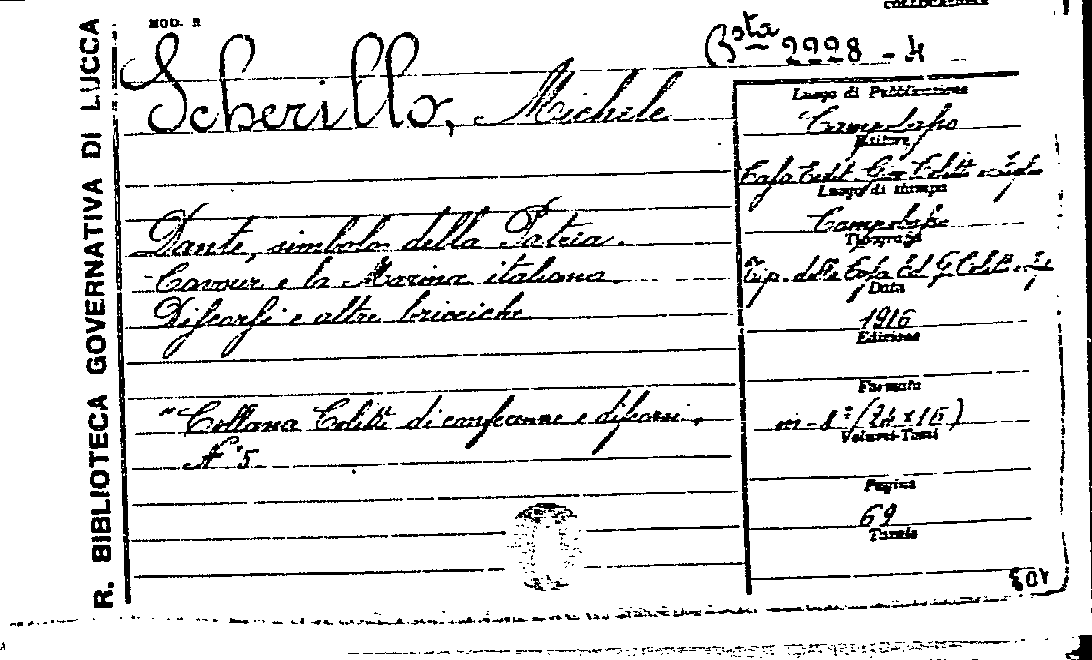 COLLOCAZIONE
MOD. R
R. BIBLIOTECA GOVERNATIVA DI LUCCA
Bsta 2228 - 4
Scherillo, Michele
Dante, simbolo della Patria.
Cavour e la Marina italiana
Discorsi e altre briciche
"Collana Colitti di conferenze e discorsi,
N° 5.
Luogo di Pubblicazione
Campobasso
Editore
Casa Edit. Gio. Colitti e Figlio
Luogo di stampa
Campobasso
Tipografia
Tip. della Casa Ed. G. Colitti e F.
Data
1916
Edizione
Formato
in-8° (24x16)
Volumi-Tomi
Pagine
69
Tavole